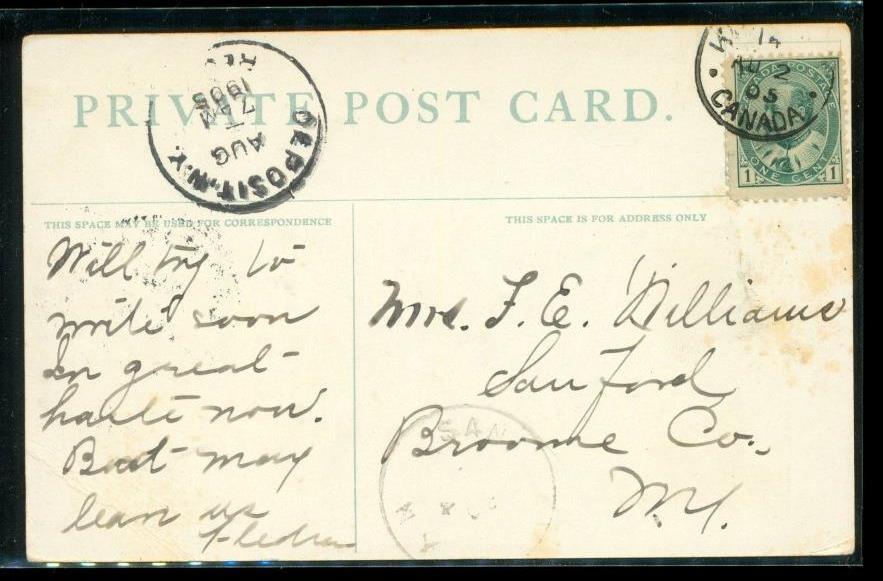 PRIVATE POST CARD.
DEPOSIT. N.Y.
AUG
7 PM
1905
AU 2
05
CANADA
CANADA POSTAGE
1 ONE CENT 1
THIS SPACE MAY BE USED FOR CORRESPONDENCE
Will try to
write soon
In great
haste now.
Boat may
leave us
THIS SPACE IS FOR ADDRESS ONLY
Mrs. F. E. Williams
Sanford
Broome Co.,
NY.
SAN